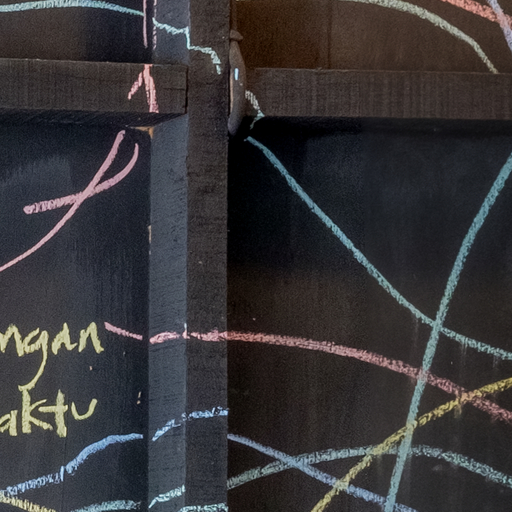 ngan
aktu